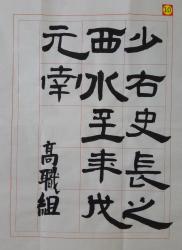 10
少右史長之
西水至年戊
元倖
高職組